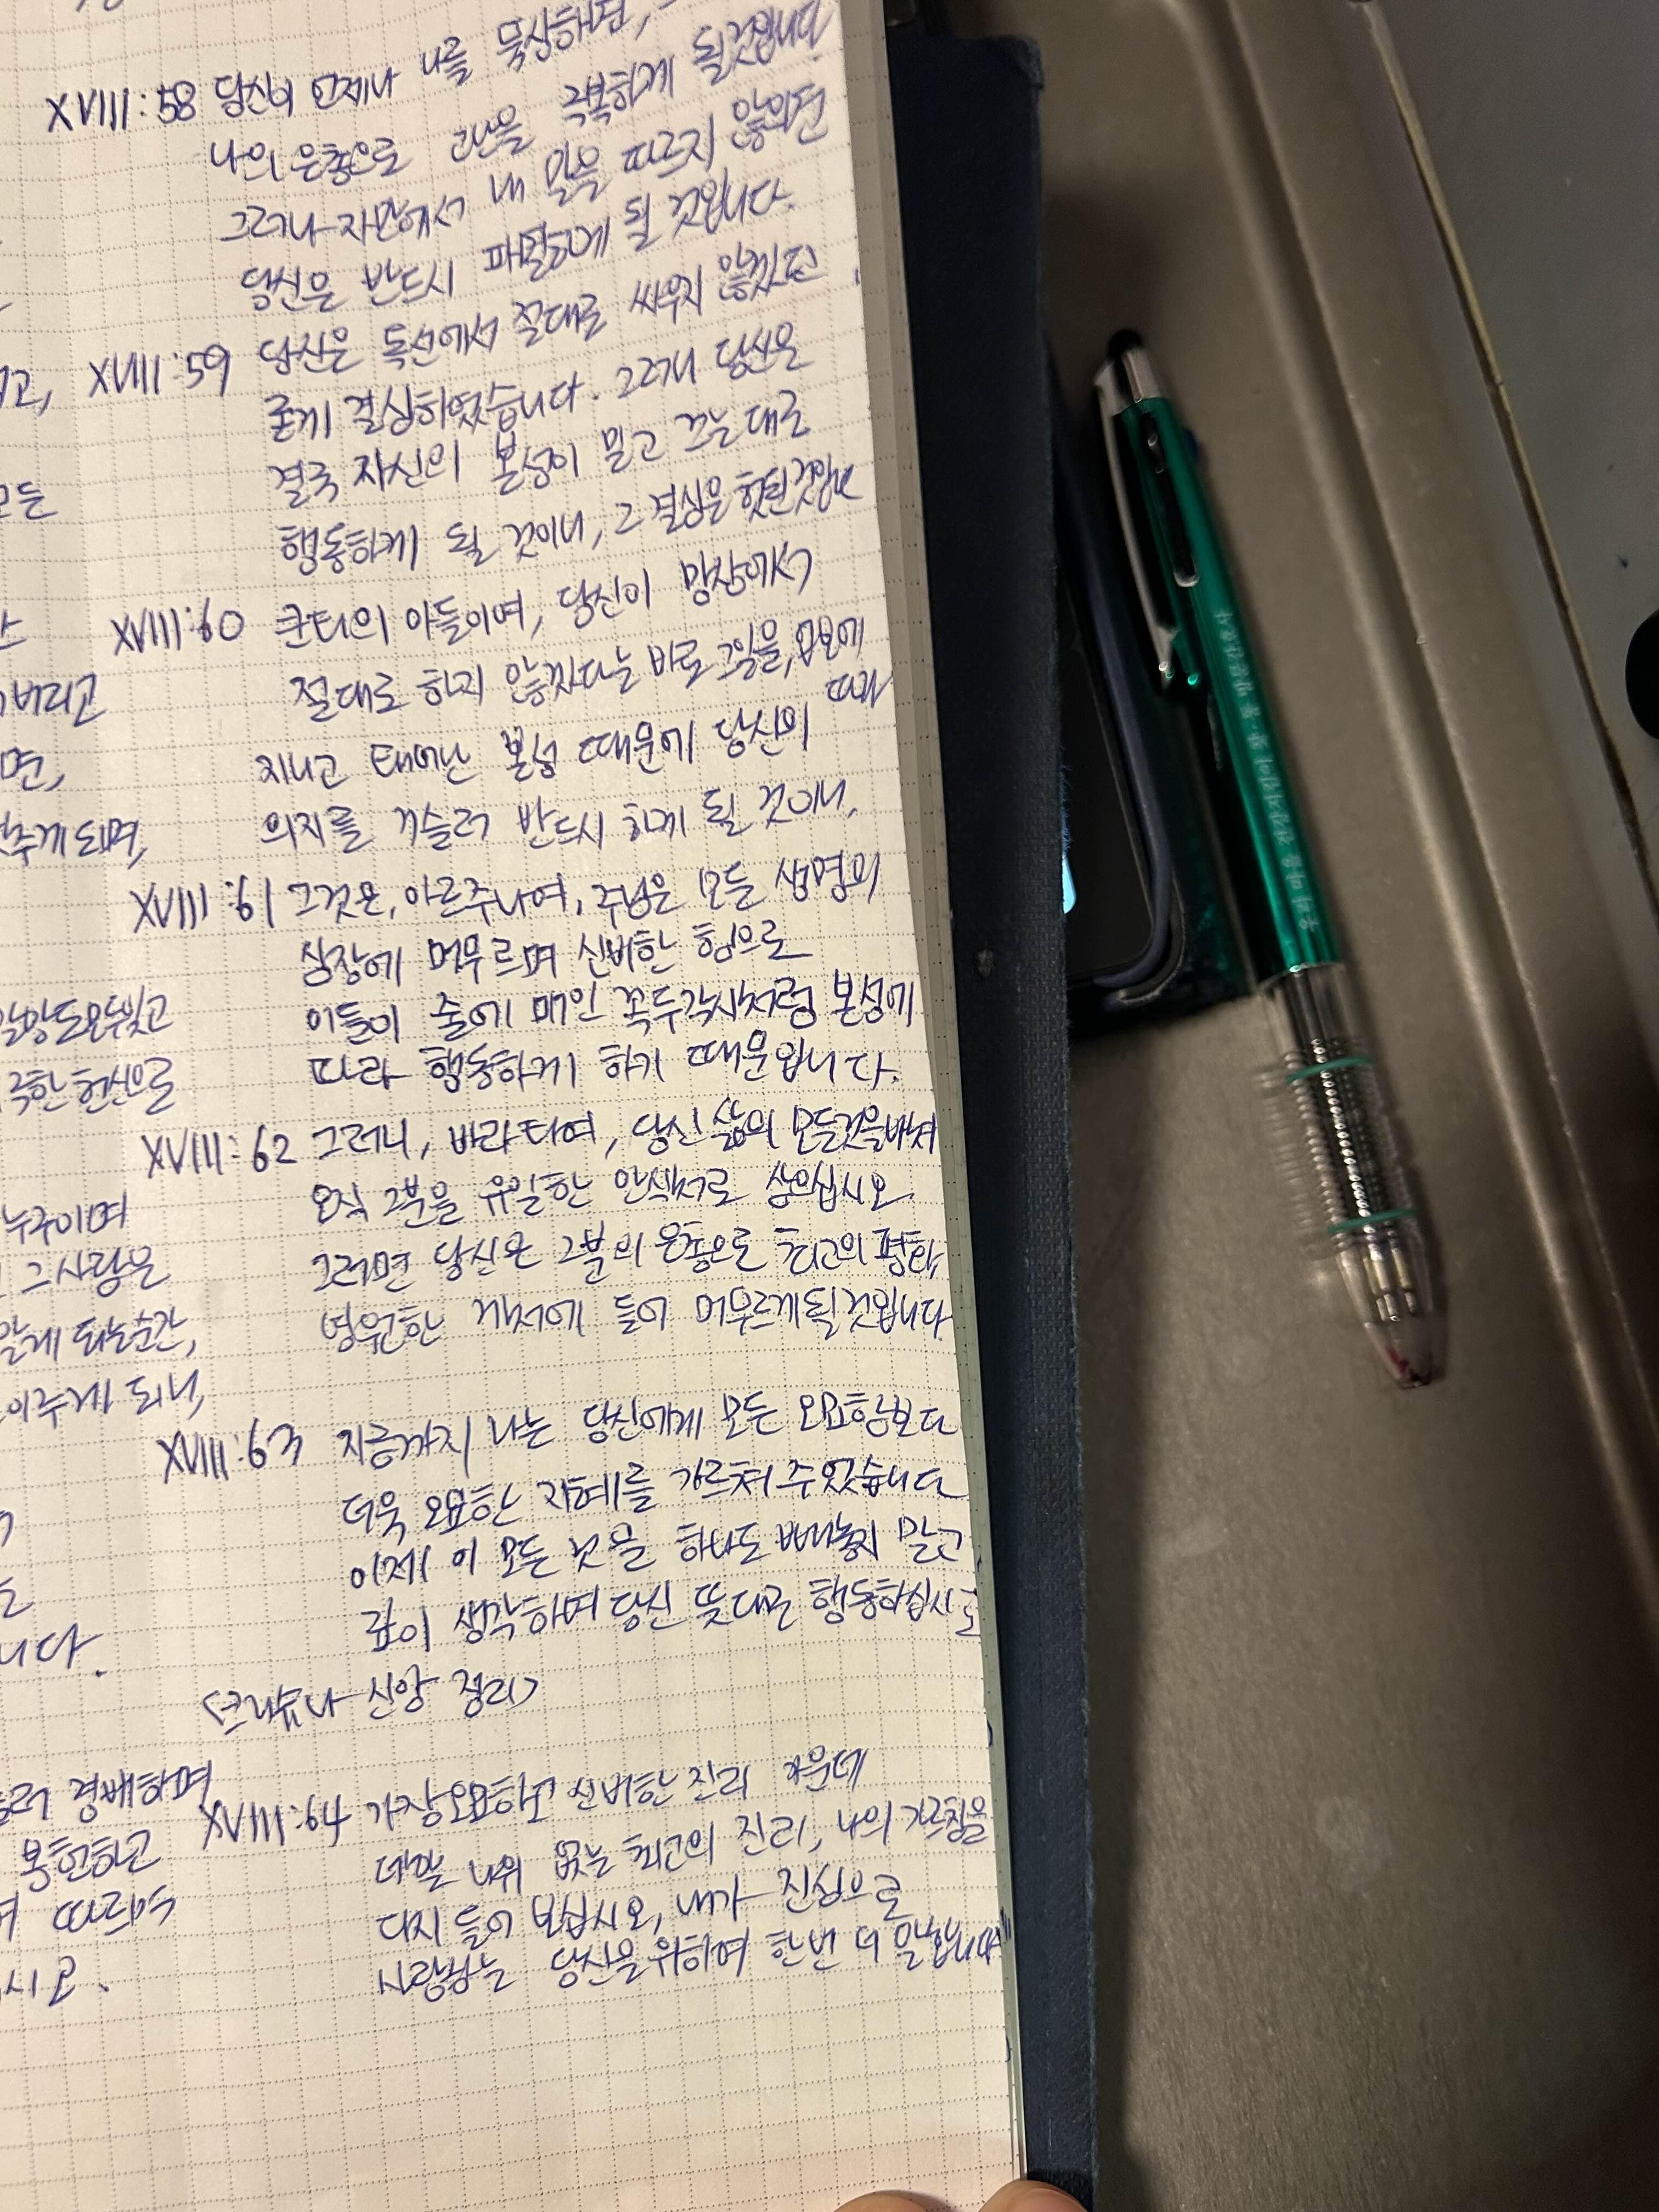 XVIII:58 당신이 언제나 나를 묵상하면,
나의 은총으로 고난을 극복하게 될것입니다
그러나 자만에서 내 말을 따르지 않으면
당신은 반드시 파멸하게 될 것입니다.
고, XVIII:59 당신은 독선에서 절대로 싸우지 않겠다고
굳게 결심하였습니다. 그러나 당신은
결국 자신의 본성이 밀고 끄는대로
모든
행동하게 될 것이니, 그 결심은 헛된것입니다
XVIII:60 쿤티의 아들이여, 당신이 망상에서
버리고 절대로 하지 않겠다는 바로 그일을, 업보에 따라
면, 지니고 태어난 본성 때문에 당신의
추게 되며, 의지를 거슬러 반드시 하게 될 것이니,
XVIII:61 그것은, 아르주나여, 주님은 모든 생명의
심장에 머무르며 신비한 힘으로
이들이 줄에 매인 꼭두각시처럼 본성에
헌신으로 따라 행동하게 하기 때문입니다.
XVIII:62 그러니, 바라타여, 당신 삶의 모든것을바쳐
누구이며 오직 그분을 유일한 안식처로 삼으십시오
그사람은 그러면 당신은 그분의 은총으로 최고의 평화,
알게 되는순간, 영원한 거처에 들어 머무르게될것입니다
이루게 되니,
XVIII:63 지금까지 나는 당신에게 모든 오묘함보다
더욱 오묘한 지혜를 가르쳐 주었습니다
이제 이 모든 것을 하나도 빼놓지 말고
니다. 깊이 생각하며 당신 뜻대로 행동하십시오
<크리슈나 신앙 정리>
경배하며 XVIII:64 가장오묘하고 신비한 진리 가운데
봉헌하고 더할 나위 없는 최고의 진리, 나의 가르침을
다시 들어 보십시오, 내가 진심으로
시오. 사랑하는 당신을위하여 한번 더 말합니다